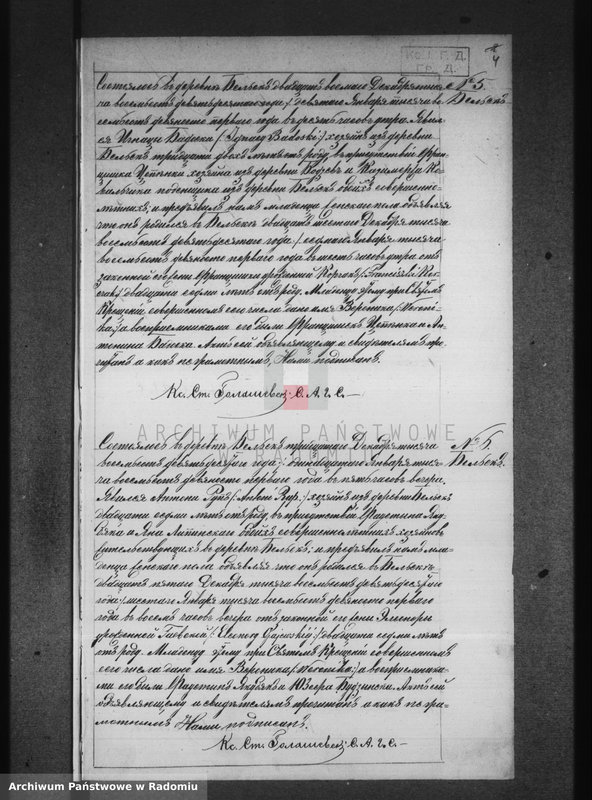 Кс. Г. Б. Д.
Гр. Д.
4
Состоялось въ деревнѣ Бельскъ двадцать восьмаго Декабря тыся-
№ 5.
ча восемьсотъ девятьдесятаго года / девятаго Января тысяча во-
Бельскъ
семьсотъ девяносто перваго года въ десять часовъ утра. Явил-
ся Игнацы Бадоски (Ignacy Badoski) хозяинъ изъ деревни
Бельскъ тридцати двохъ лѣтъ отъ роду, въ присутствіи Фран-
цишка хозяина изъ деревни и Казимержа Ко-
вальчика поденщика изъ деревни Бельскъ обоихъ совершенно-
лѣтнихъ, и предъявилъ намъ младенца женскаго пола объявляя
что онъ родился въ Бельскъ двадцать шестаго Декабря тысяча
восемьсотъ девятьдесятаго года / седьмаго Января тысяча
восемьсотъ девяносто перваго года въ шесть часовъ утра отъ
законной его жены Францишки урожденной
двадцати седми лѣтъ отъ роду. Младенцу этому при Святомъ
Крещеніи, совершенномъ сего числа дано имя Вероника (Weroni-
ka) а воспріемниками его были Францишекъ и Ан-
тонина Актъ сей объявляющему и свидѣтелямъ про-
читанъ а какъ не грамотнымъ, Нами подписанъ.
Кс. Ст. Галашевск С. А. Г. С.
ARCHIWUM PAŃSTWOWE
W RADOMIU
Состоялось въ деревнѣ Бельскъ тридцатаго Декабря тысяча
№ 6.
восемьсотъ девятьдесятаго года / одинадцатаго Января тыся-
Бельскъ.
ча восемьсотъ девяносто перваго года въ пять часовъ вечера.
Явился Антони Рупъ (Antoni Rup) хозяинъ изъ деревни Бельскъ
двадцати седми лѣтъ отъ роду, въ присутствіи
и Яна Липинскаго обоихъ совершеннолѣтнихъ хозяевъ
жительствующихъ въ деревнѣ Бельскъ, и предъявилъ намъ мла-
денца женскаго пола объявляя что онъ родился въ Бельскъ
двадцать пятаго Декабря тысяча восемьсотъ девятьдесятаго
года / шестаго Января тысяча восемьсотъ девяносто перваго
года въ восемь часовъ вечера отъ законной его жены Элеоноры
урожденной Гаевской (Eleonory Gajewskiej) двадцати седми лѣтъ
отъ роду. Младенцу этому при Святомъ Крещеніи совершенномъ
сего числа дано имя Вероника (Weronika) а воспріемника-
ми его были и Юзефа Будзинска. Актъ сей
объявляющему и свидѣтелямъ прочитанъ а какъ не гра-
мотнымъ Нами подписанъ.
Кс. Ст. Галашевск С. А. Г. С.
Archiwum Państwowe w Radomiu